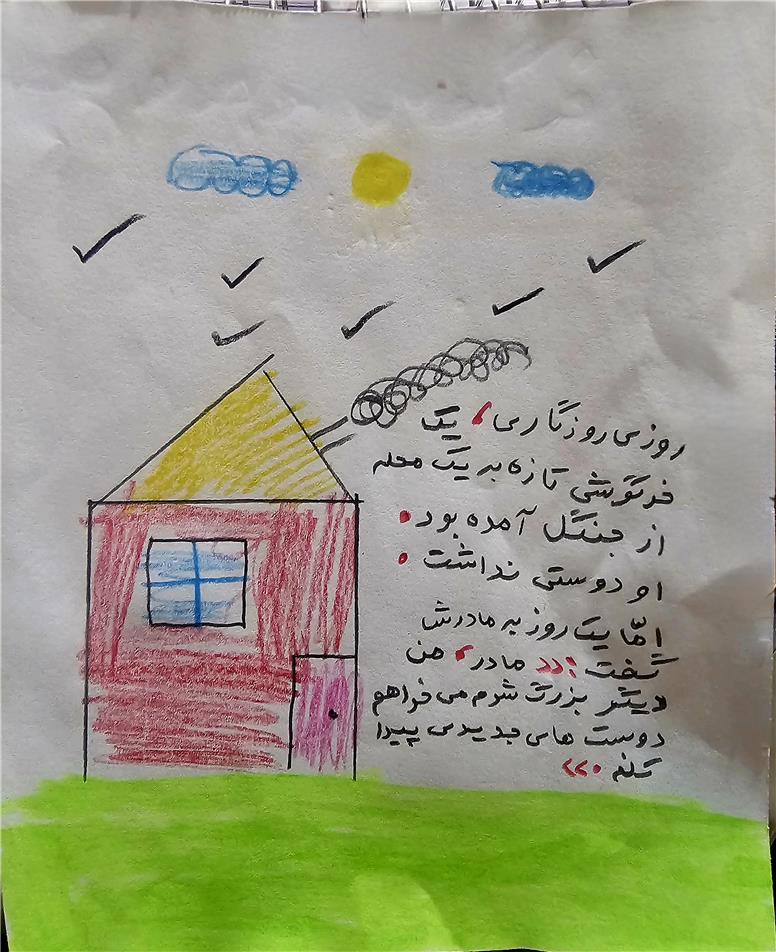 روزی روزگاری، یک
خرگوشی تازه به یک محله
از جنگل آمده بود.
او دوستی نداشت.
امّا یک روز به مادرشا
گفت :«مادر، من
دیگر بزرگ شوم می خواهم
دوست های جدیدی پیدا
کنم.»